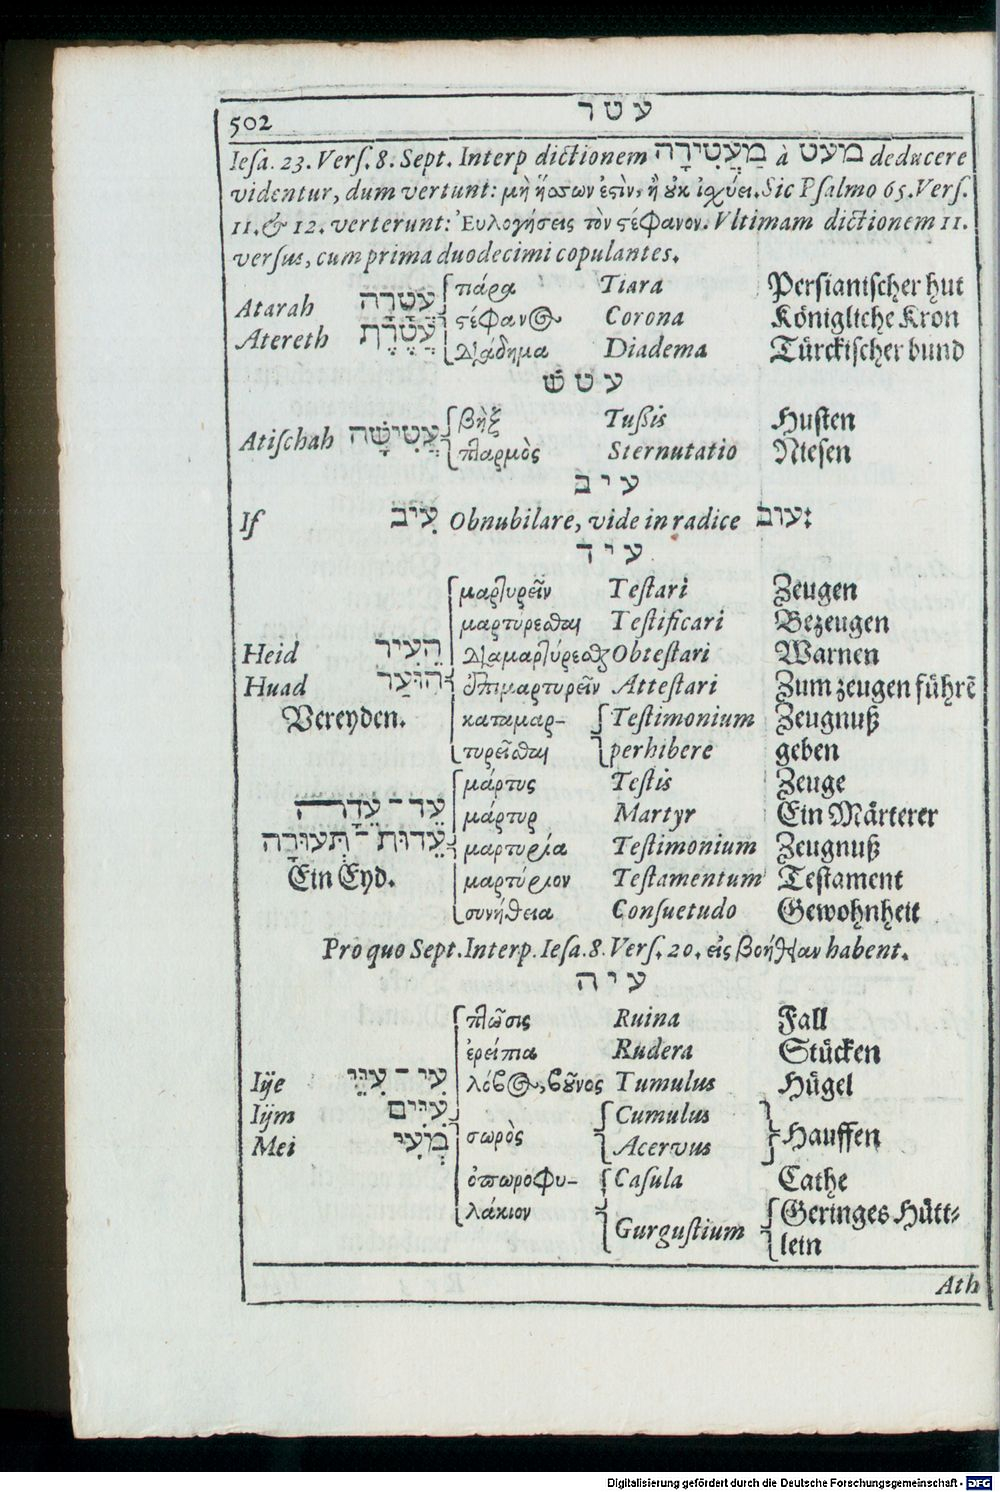 502
עטר
Iesa. 23. Vers. 8. Sept. Interp dictionem מַעֲטִירָה à מעט deducere
videntur, dum vertunt: μὴ ἥσσων ἐςὶν, ἢ ȣκ ἰχύει. Sic Psalmo 65. Vers.
11. & 12. verterunt: Ἐυλογήσεις τὸν ςέφανον. Vltimam dictionem 11.
versus, cum prima duodecimi copulantes.
Atarah עֲטָרָה τιάρα Tiara Persianischer hut
Atereth עֲטֶרֶת ςέφανος Corona Königliche Kron
διάδημα Diadema Türckischer bund
עטש
βὴξ Tußis Husten
Atischah עֲטִישָׁה πταρμὸς Sternutatio Niesen
עיב
If עִיב Obnubilare, vide in radice עוב:
עיד
μαρτυρεῖν Testari Zeugen
μαρτύρεσθαι Testificari Bezeugen
Heid הֵעִיד διαμαρτύρεσθαι Obtestari Warnen
Huad הוּעַד ἐπιμαρτυρεῖν Attestari Zum zeugen führē
Vereyden. καταμαρ- Testimonium Zeugnuß
τυρεῖσθαι perhibere geben
μάρτυς Testis Zeuge
עֵד - עֵדָה μάρτυρ Martyr Ein Märterer
עֵדוּת - תְּעוּדָה μαρτυρία Testimonium Zeugnuß
Ein Eyd. μαρτύριον Testamentum Testament
συνήθεια Consuetudo Gewohnheit
Pro quo Sept. Interp. Iesa. 8. Vers. 20. εἰς βοήθειαν habent.
עיה
πτῶσις Ruina Fall
ἐρείπια Rudera Stücken
Iije עִי - עִיֵּי λόφος, βȣνος Tumulus Hügel
Iijm עִיִּים Cumulus
Mei מְעִי σωρὸς Acervus Hauffen
ὀπωροφυ- Casula Cathe
λάκιον Gurgustium Geringes Hütt-
lein
Ath
Digitalisierung gefördert durch die Deutsche Forschungsgemeinschaft - DFG